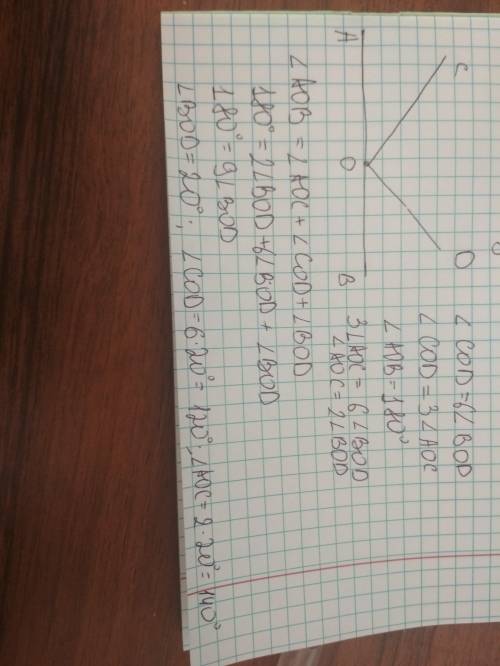 C
D
A
O
B
∠COD=6∠BOD
∠COD=3∠AOC
∠AOB=180°
3∠AOC=6∠BOD
∠AOC=2∠BOD
∠AOB=∠AOC+∠COD+∠BOD
180°=2∠BOD+6∠BOD+∠BOD
180°=9∠BOD
∠BOD=20°; ∠COD=6·20°=120°; ∠AOC=2·20°=40°